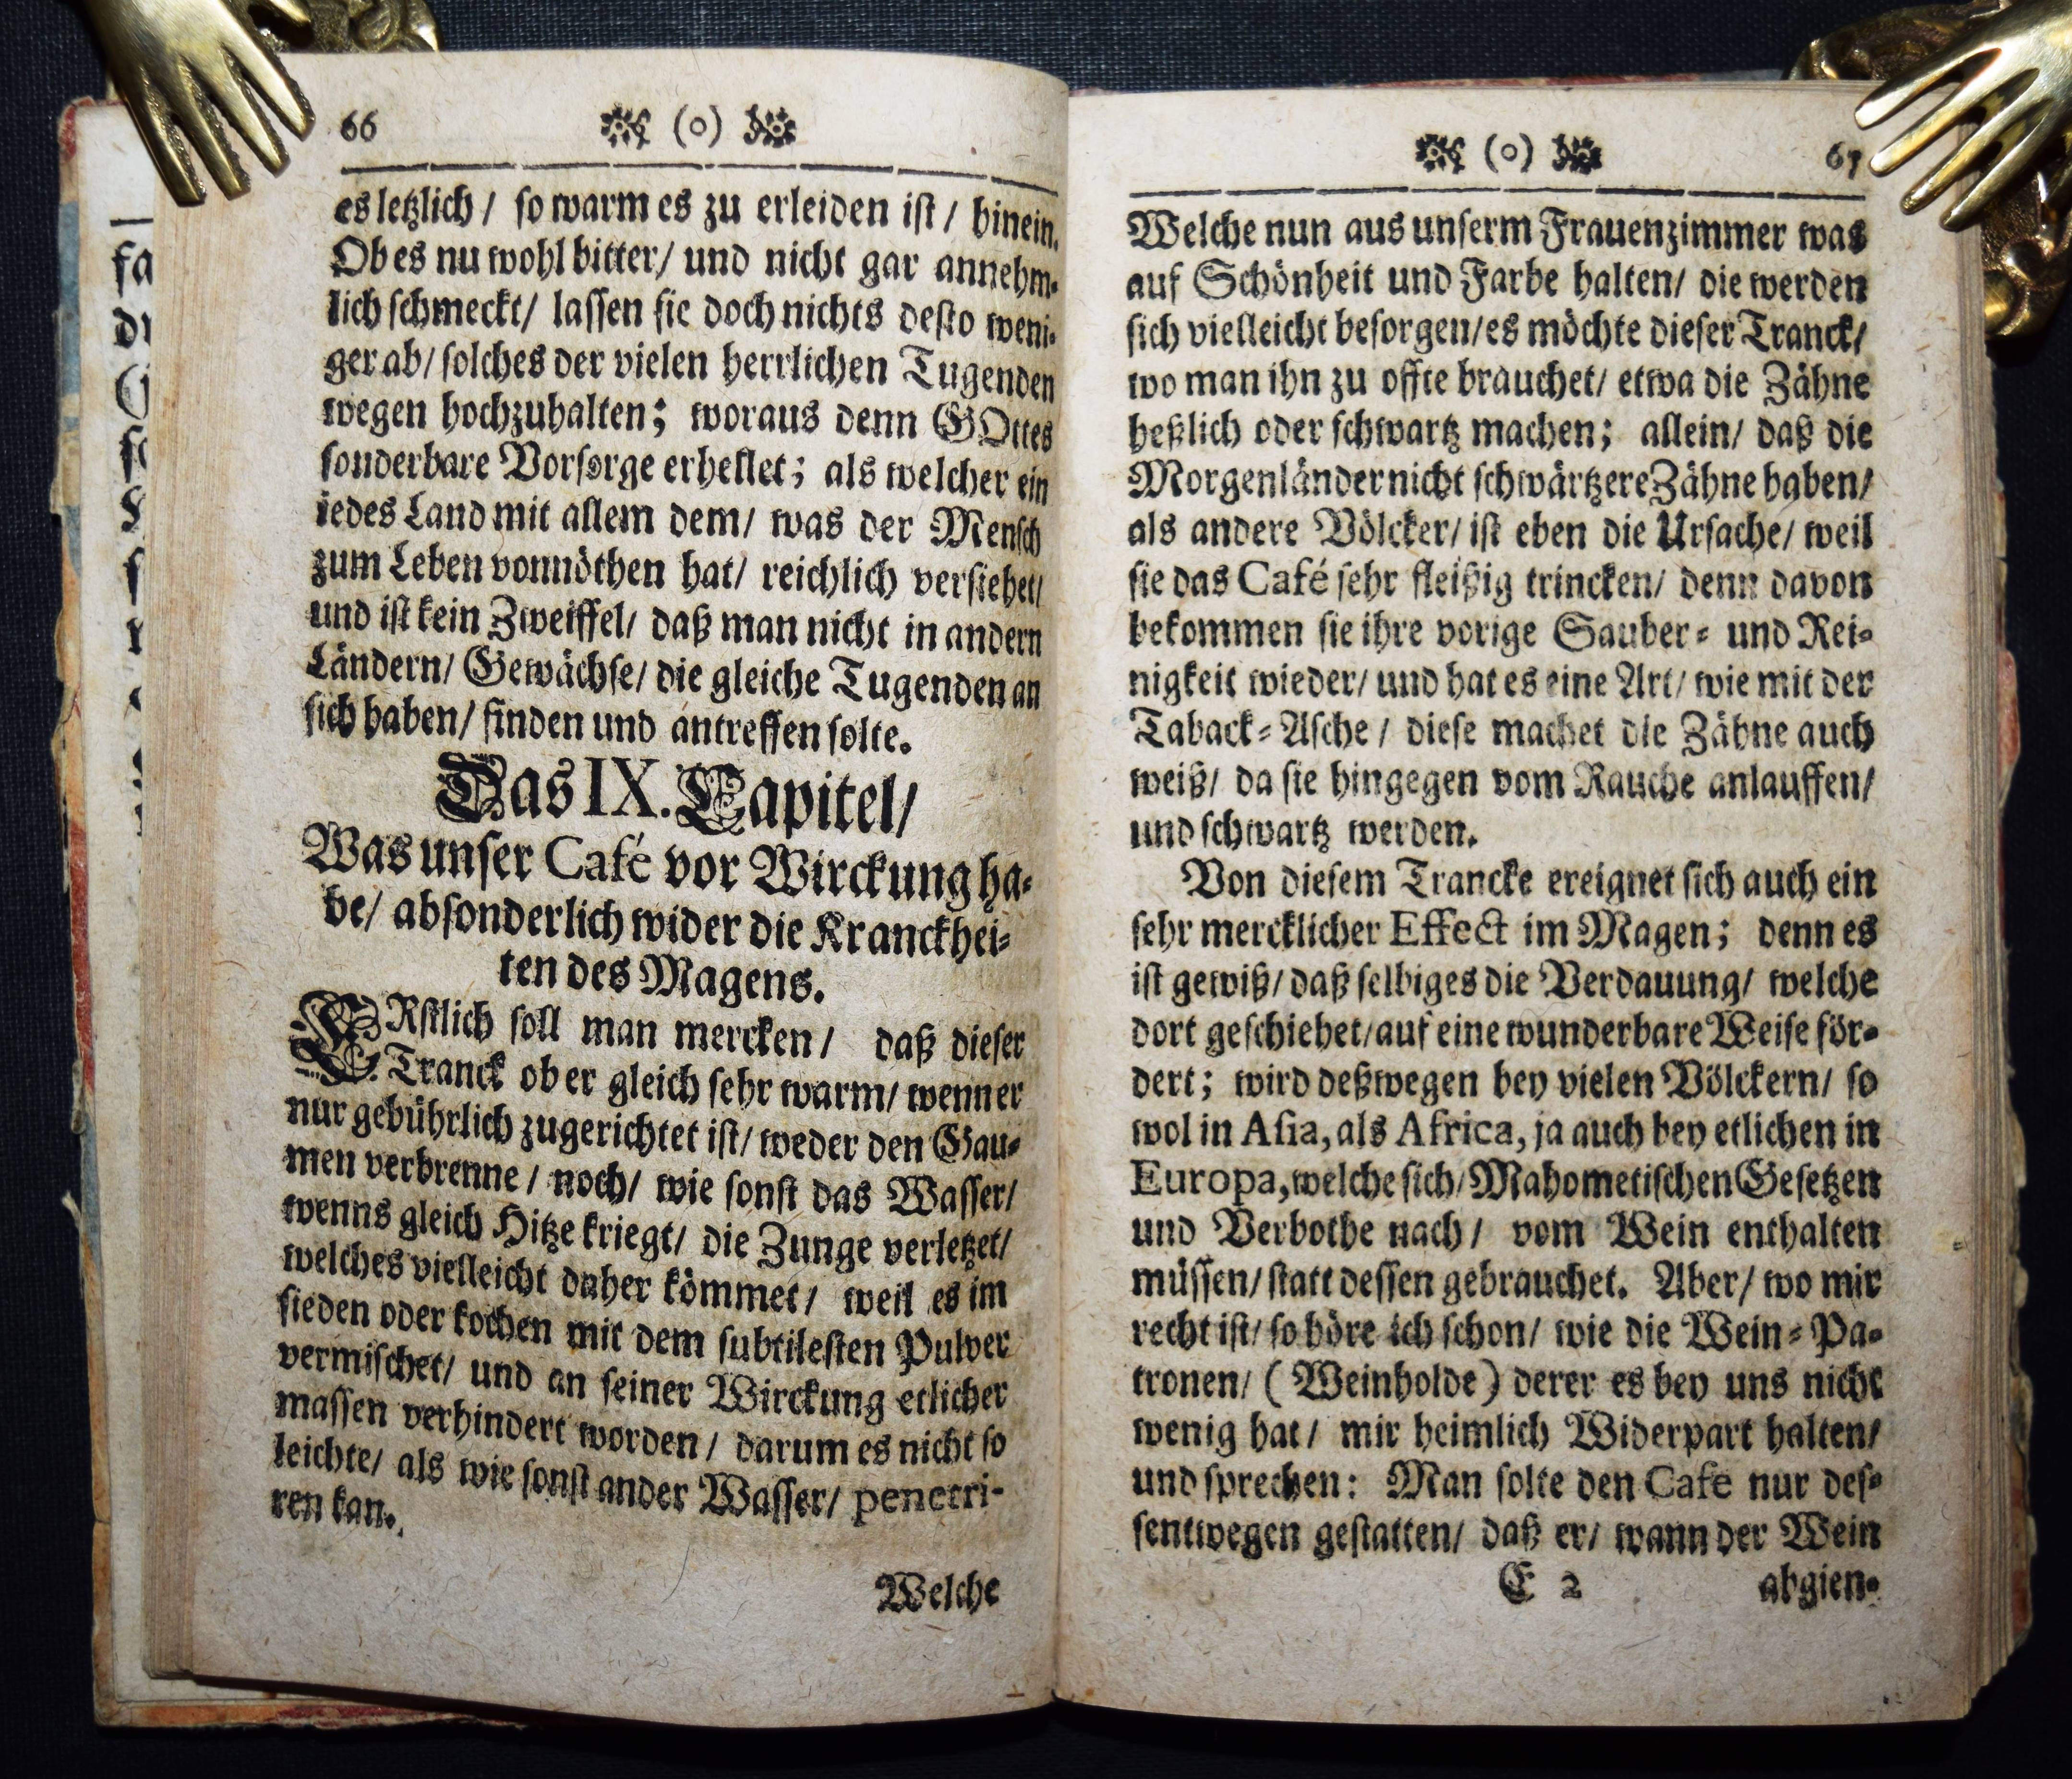 66 (o)
es letzlich / so warm es zu erleiden ist / hinein.
Ob es nu wohl bitter/ und nicht gar annehm-
lich schmeckt/ lassen sie doch nichts desto weni-
ger ab/ solches der vielen herrlichen Tugenden
wegen hochzuhalten; woraus denn GOttes
sonderbare Vorsorge erhellet; als welcher ein
iedes Land mit allem dem/ was der Mensch
zum Leben vonnöthen hat/ reichlich versiehet/
und ist kein Zweiffel/ daß man nicht in andern
Ländern/ Gewächse/ die gleiche Tugenden an
sich haben/ finden und antreffen solte.
Das IX. Capitel/
Was unser Café vor Wirckung ha-
be/ absonderlich wider die Kranckhei-
ten des Magens.
ERstlich soll man mercken / daß dieser
Tranck ob er gleich sehr warm/ wenn er
nur gebührlich zugerichtet ist/ weder den Gau-
men verbrenne / noch/ wie sonst das Wasser/
wenns gleich Hitze kriegt/ die Zunge verletzet/
welches vielleicht daher kömmet / weil es im
sieden oder kochen mit dem subtilesten Pulver
vermischet/ und an seiner Wirckung etlicher
massen verhindert worden / darum es nicht so
leichte/ als wie sonst ander Wasser/ penetri-
ren kan.
Welche
(o) 67
Welche nun aus unserm Frauenzimmer was
auf Schönheit und Farbe halten/ die werden
sich vielleicht besorgen/es möchte dieser Tranck/
wo man ihn zu offte brauchet/ etwa die Zähne
heßlich oder schwartz machen; allein/ daß die
Morgenländer nicht schwärtzere Zähne haben/
als andere Völcker/ ist eben die Ursache/ weil
sie das Café sehr fleißig trincken/ denn davon
bekommen sie ihre vorige Sauber- und Rei-
nigkeit wieder/ und hat es eine Art/ wie mit der
Taback-Asche / diese machet die Zähne auch
weiß/ da sie hingegen vom Rauche anlauffen/
und schwartz werden.
Von diesem Trancke ereignet sich auch ein
sehr mercklicher Effect im Magen; denn es
ist gewiß/ daß selbiges die Verdauung/ welche
dort geschiehet/auf eine wunderbare Weise för-
dert; wird deßwegen bey vielen Völckern/ so
wol in Asia, als Africa, ja auch bey etlichen in
Europa, welche sich/ Mahometischen Gesetzen
und Verbothe nach / vom Wein enthalten
müssen/ statt dessen gebrauchet. Aber/ wo mir
recht ist/ so höre ich schon/ wie die Wein-Pa-
tronen/ (Weinholde) derer es bey uns nicht
wenig hat / mir heimlich Widerpart halten/
und sprechen: Man solte den Cafe nur des-
sentwegen gestatten/ daß er/ wann der Wein
E 2 abgien-